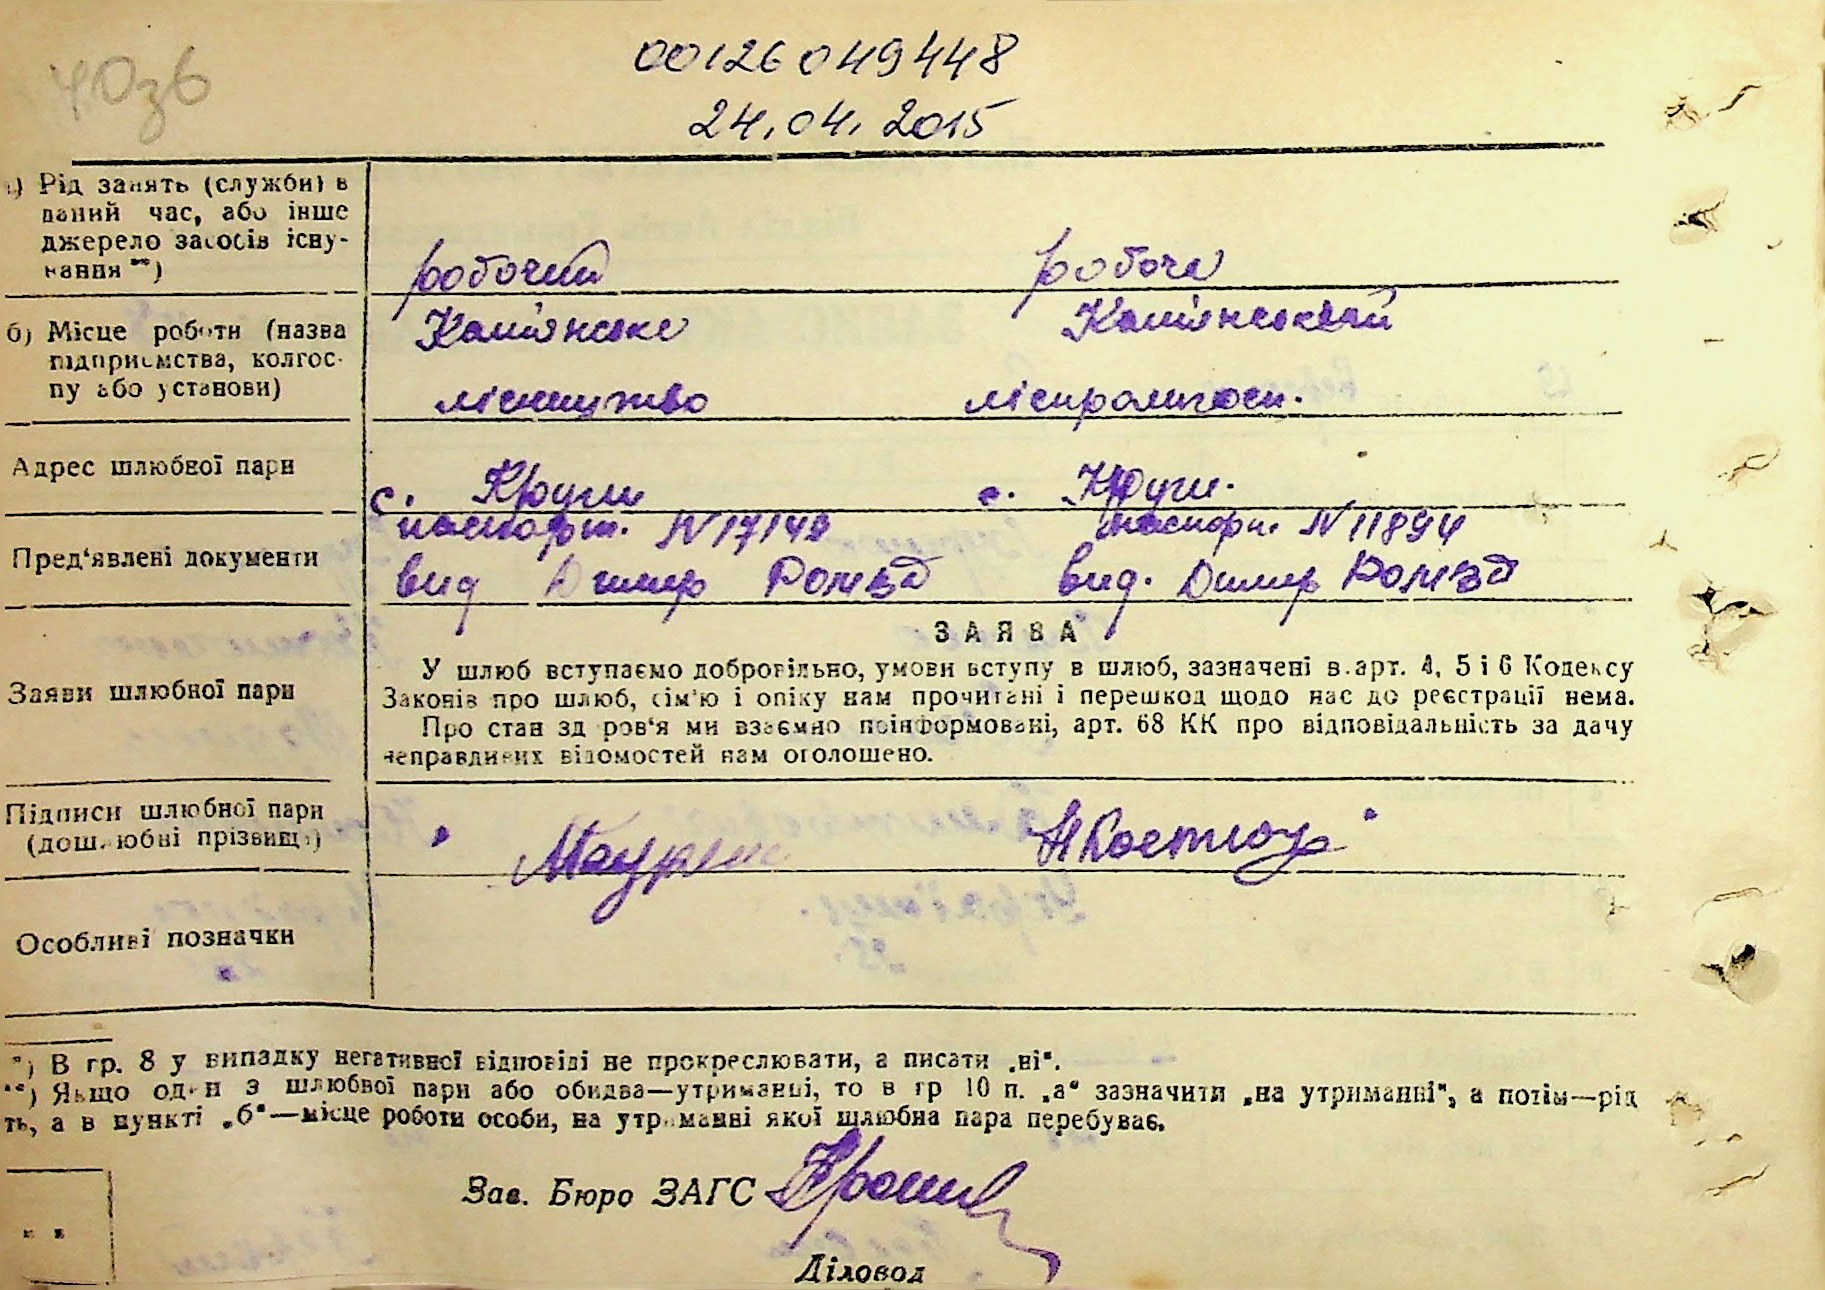 00126049448
24.04.2015
а) Рід занять (служби) в
даний час, або інше
джерело засобів існу-
вання **)
робочий робоча
б) Місце роботи (назва
підприємства, колгос-
пу або установи)
Кам'янське
лісництво ліспромгосп.
Адрес шлюбної пари
с. Круги с. Круги.
Пред'явлені документи
паспорт. N 17149 паспорт. N 11894
вид Димер вид. Димер
ЗАЯВА
У шлюб вступаємо добровільно, умови вступу в шлюб, зазначені в арт. 4, 5 і 6 Кодексу
Законів про шлюб, сім'ю і опіку нам прочитані і перешкод щодо нас до реєстрації нема.
Про стан здоров'я ми взаємно поінформовані, арт. 68 КК про відповідальність за дачу
неправдивих відомостей нам оголошено.
Заяви шлюбної пари
Підписи шлюбної пари
(дошлюбні прізвища)
Особливі позначки
*) В гр. 8 у випадку негативної відповіді не прокреслювати, а писати „ні".
**) Якщо один з шлюбної пари або обидва—утриманці, то в гр 10 п. „а" зазначити „на утриманні", а потім—рід
ть, а в пункті „б"—місце роботи особи, на утриманні якої шлюбна пара перебуває.
Зав. Бюро ЗАГС
Діловод